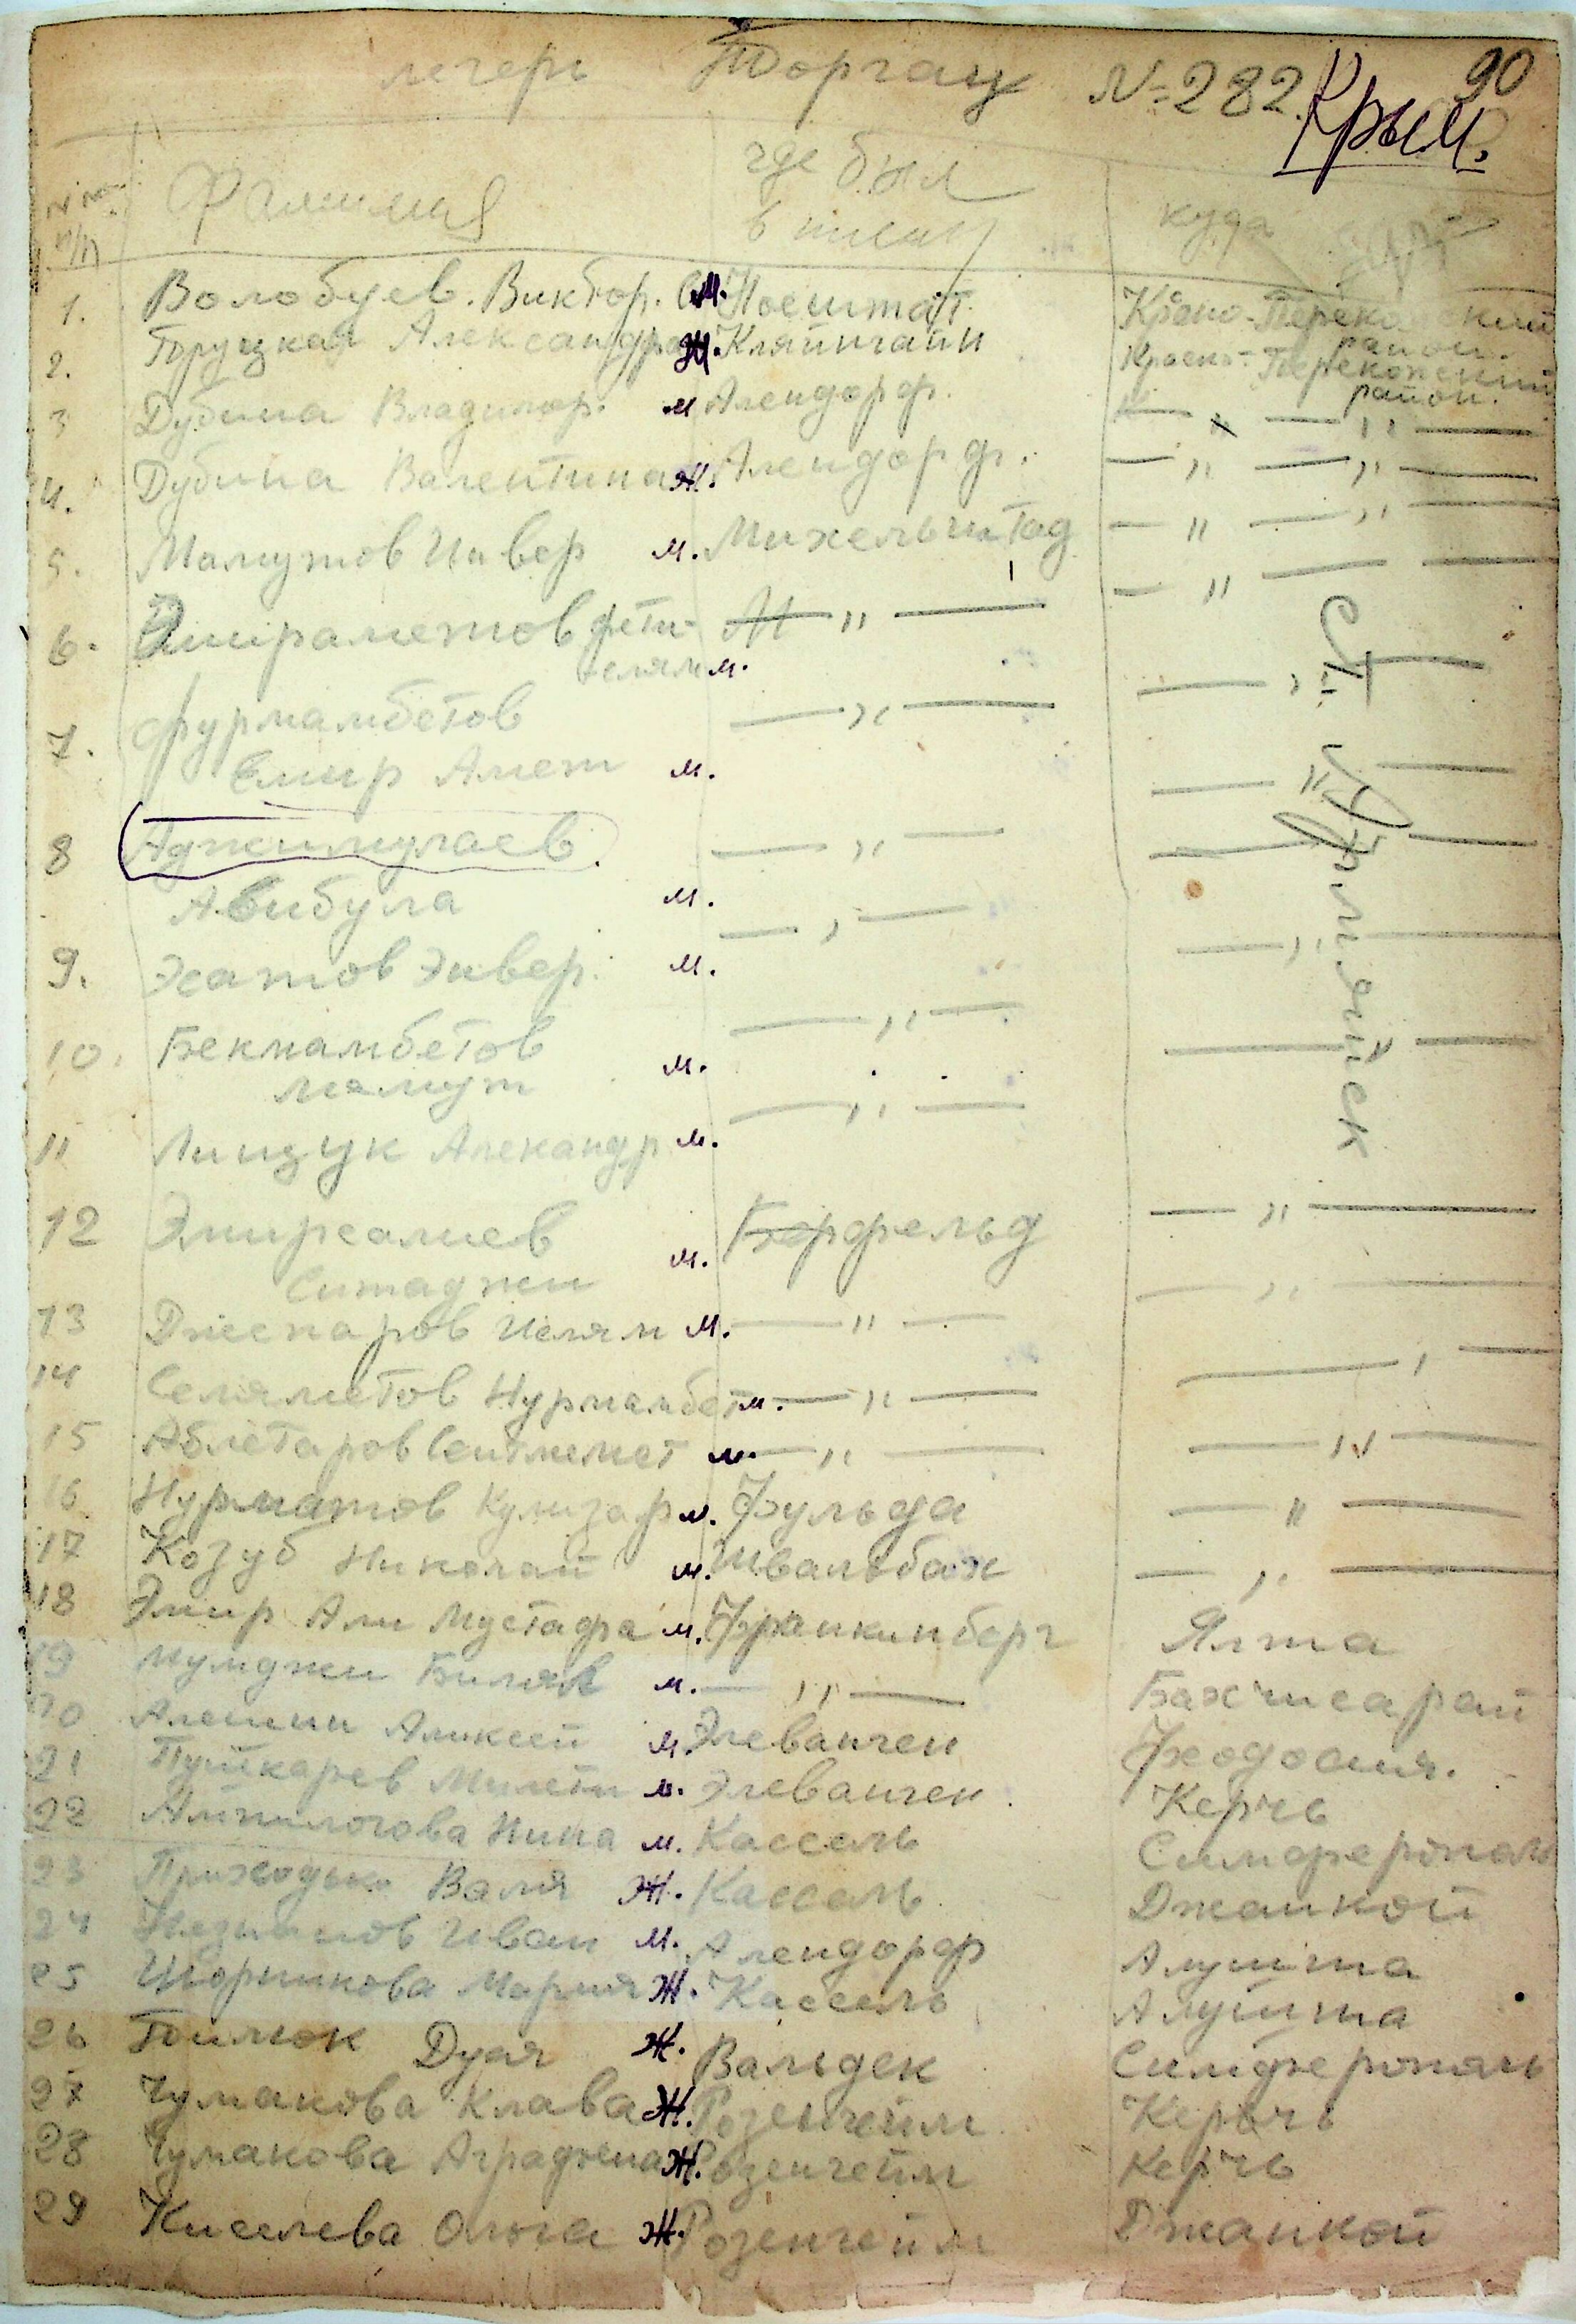 лагерь Торгау №282. 90
Крым.
№№ п/п Фамилия где был в плену куда
1. Волобуев. Виктор. м. Ноештат. Красно-Перекопский район.
2. Горуцкая Александра Ж. Кляйнгайн Красно-Перекопский район.
3 Дубина Владимир. м Алендорф. — " — " —
4. Дубина Валентина ж. Алендорф. — " — " —
5. Мамутов Инвер м. Михельштад — " — " —
6. Эмираметов фети- — " — — " — —
лям м.
7. Фурмамбетов — " — — " —
Емир Амет м.
8 Аджимулаев. — " — — " —
Абибула м.
9. Эсатов Энвер. м. — " — — " —
10. Бекмамбетов — " — — " —
мамут м.
11 Лищук Алекандр м. — " —
12 Эмирсалиев Берфельд — " —
Ситаджи м.
13 Джепаров Ислям м. — " — — " —
14 Селяметов Нурмамбет м. — " — — " —
15 Аблетаров Сеитмемет м. — " — — " —
16 Нурматов Кулизар м. Фульда — " —
17 Козуб Николай м. Швальбах — " —
18 Эмир Али Мустафа м. Франкинберг Ялта
19 Мумджи Билял м. — " — Бахчисарай
20 Алешин Аликсей м. Элеванген Феодосия.
21 Пушкарев Милети м. Элеванген. Керчь
22 Анпилогова Нина м. Кассель Симферополь
23 Приходько Валя Ж. Кассель Джанкой
24 Иван м. Алендорф Алушта
25 Шорникова Мария Ж. Кассель Алушта
26 Дуся Ж. Вальдек Симферополь
27 Чумакова Клава Ж. Розенгейм Керчь
28 Чумакова Аграфена Ж. Розенгейм Керчь
29 Киселева Ольга Ж. Розенгейм Джанкой